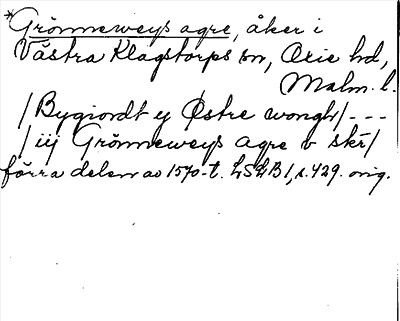 *Grönneweys agre, åker i
Västra Klagstorps sn, Oxie hd,
Malm. l.
/Bygiordt ij Østre wongh/---
/iij Grönneweys agre v skr/
förra delen av 1570-t. LSLB 1, s. 429. orig.